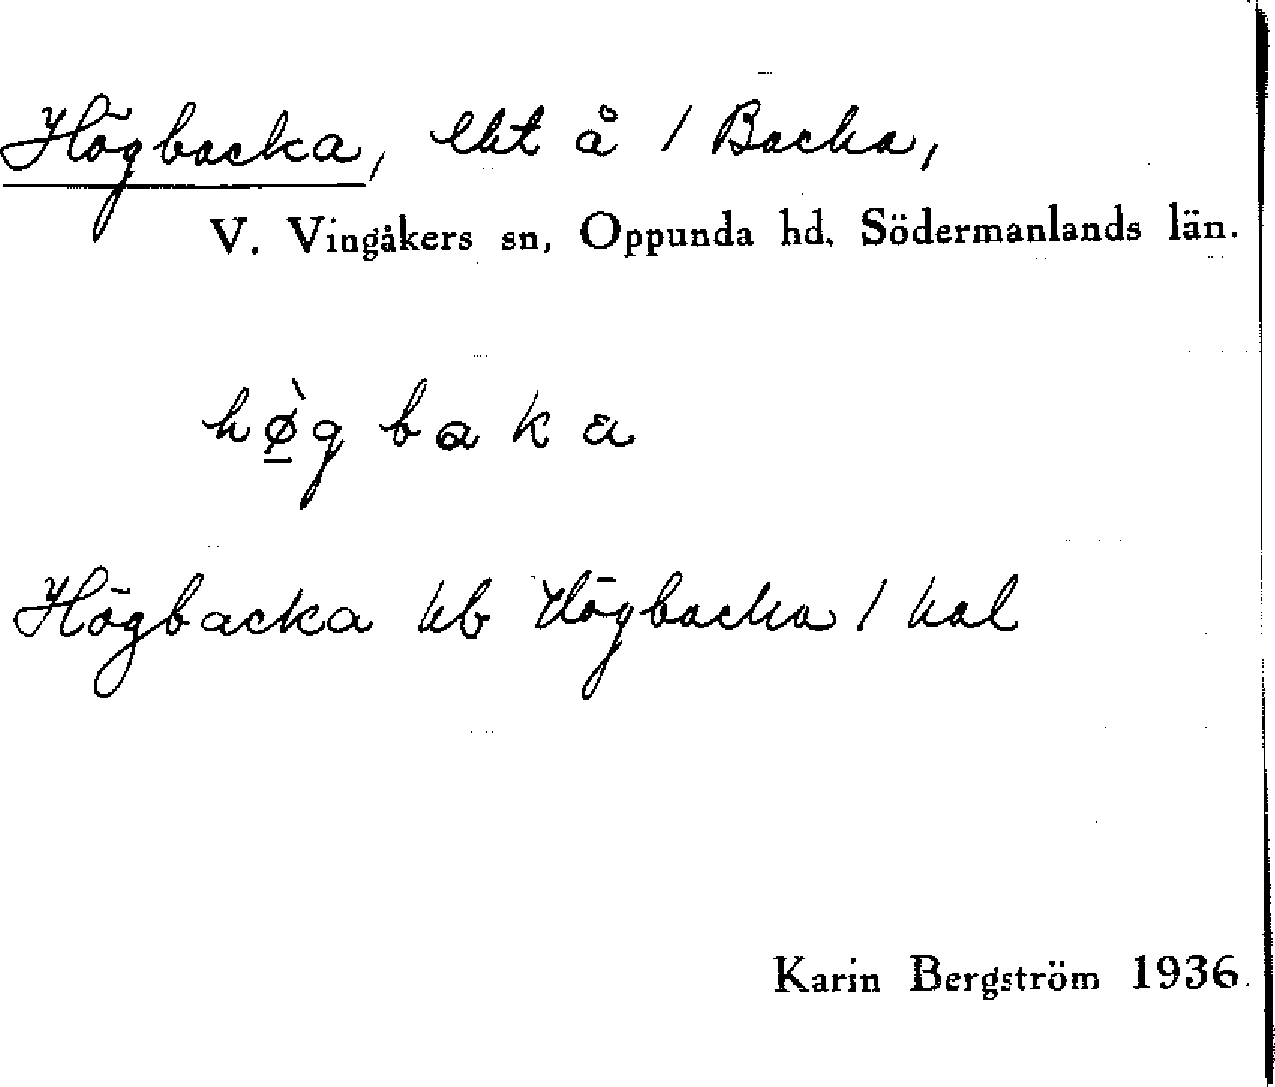 Högbacka, lht å 1 Backa,
V. Vingåkers sn, Oppunda hd, Södermanlands län.
hø̲̀gbaka
Högbacka kb Högbacka 1 kal
Karin Bergström 1936.